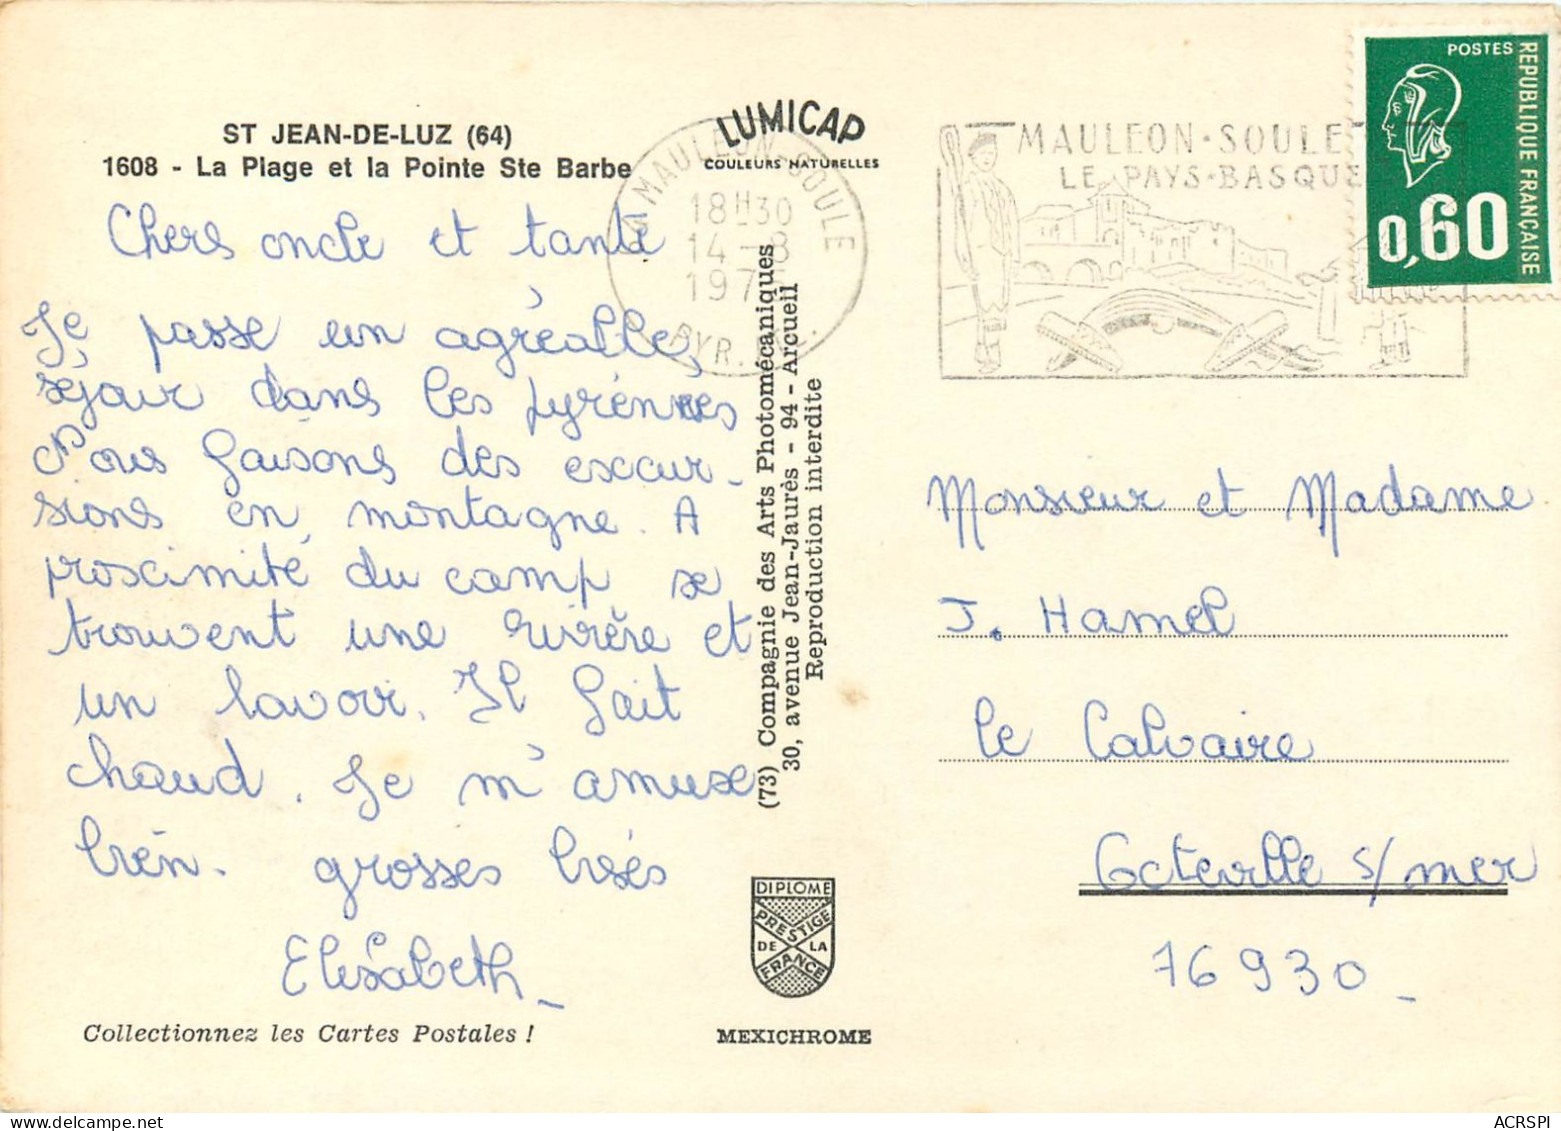 ST JEAN-DE-LUZ (64)
1608 - La Plage et la Pointe Ste Barbe
Chers oncle et tante
Je passe un agréable
séjour dans les pyrénnées
Nous faisons des excur-
sions en montagne. A
proscimité du camp se
trouvent une rivière et
un lavoir. Il fait
chaud. Je m'amuse
bien. grosses bisés
Elisabeth_
Collectionnez les Cartes Postales !
LUMICAP
COULEURS NATURELLES
MAULEON-SOULE
18H30
14-8
PYR.
(73) Compagnie des Arts Photomécaniques
30, avenue Jean-Jaurès - 94 - Arcueil
Reproduction interdite
DIPLOME
PRESTIGE
DE LA
FRANCE
MEXICHROME
MAULEON-SOULE
LE PAYS-BASQUE
POSTES
REPUBLIQUE FRANÇAISE
0,60
Monsieur et Madame
J. Hamel
le Calvaire
Octeville s/mer
76930_
ACRSPI